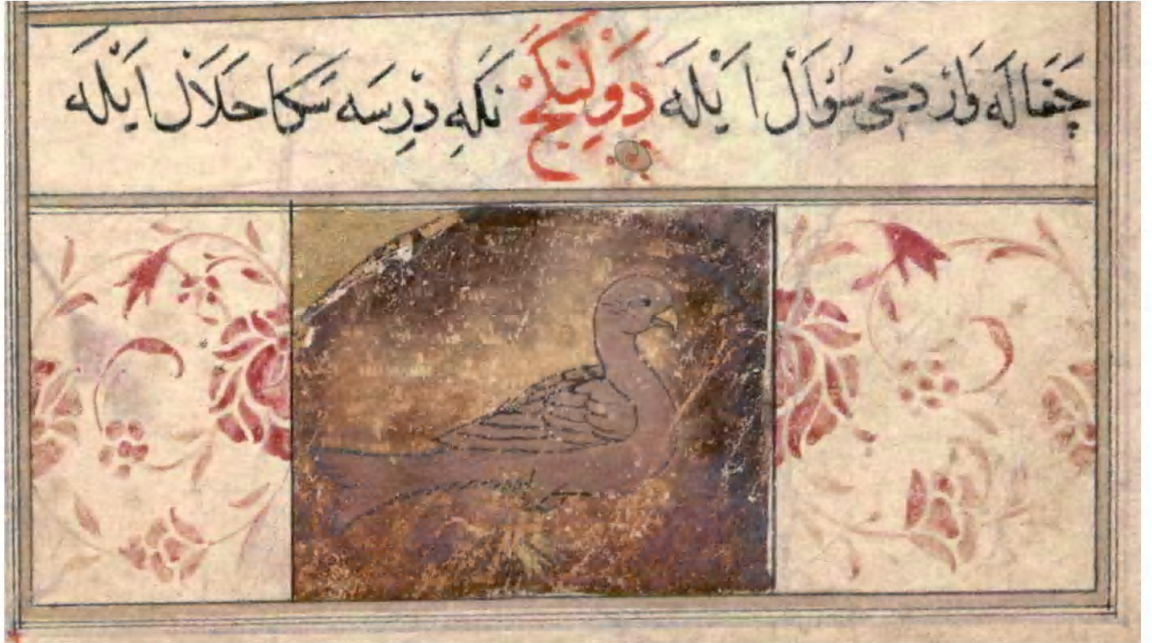 چَغَالَه وَارْ دَخِى سُؤَالْ اَيْلَه دَوْلِنْكَجْ نَكَهِ دِرِسَه سَكَا حَلَالْ اَيْلَه